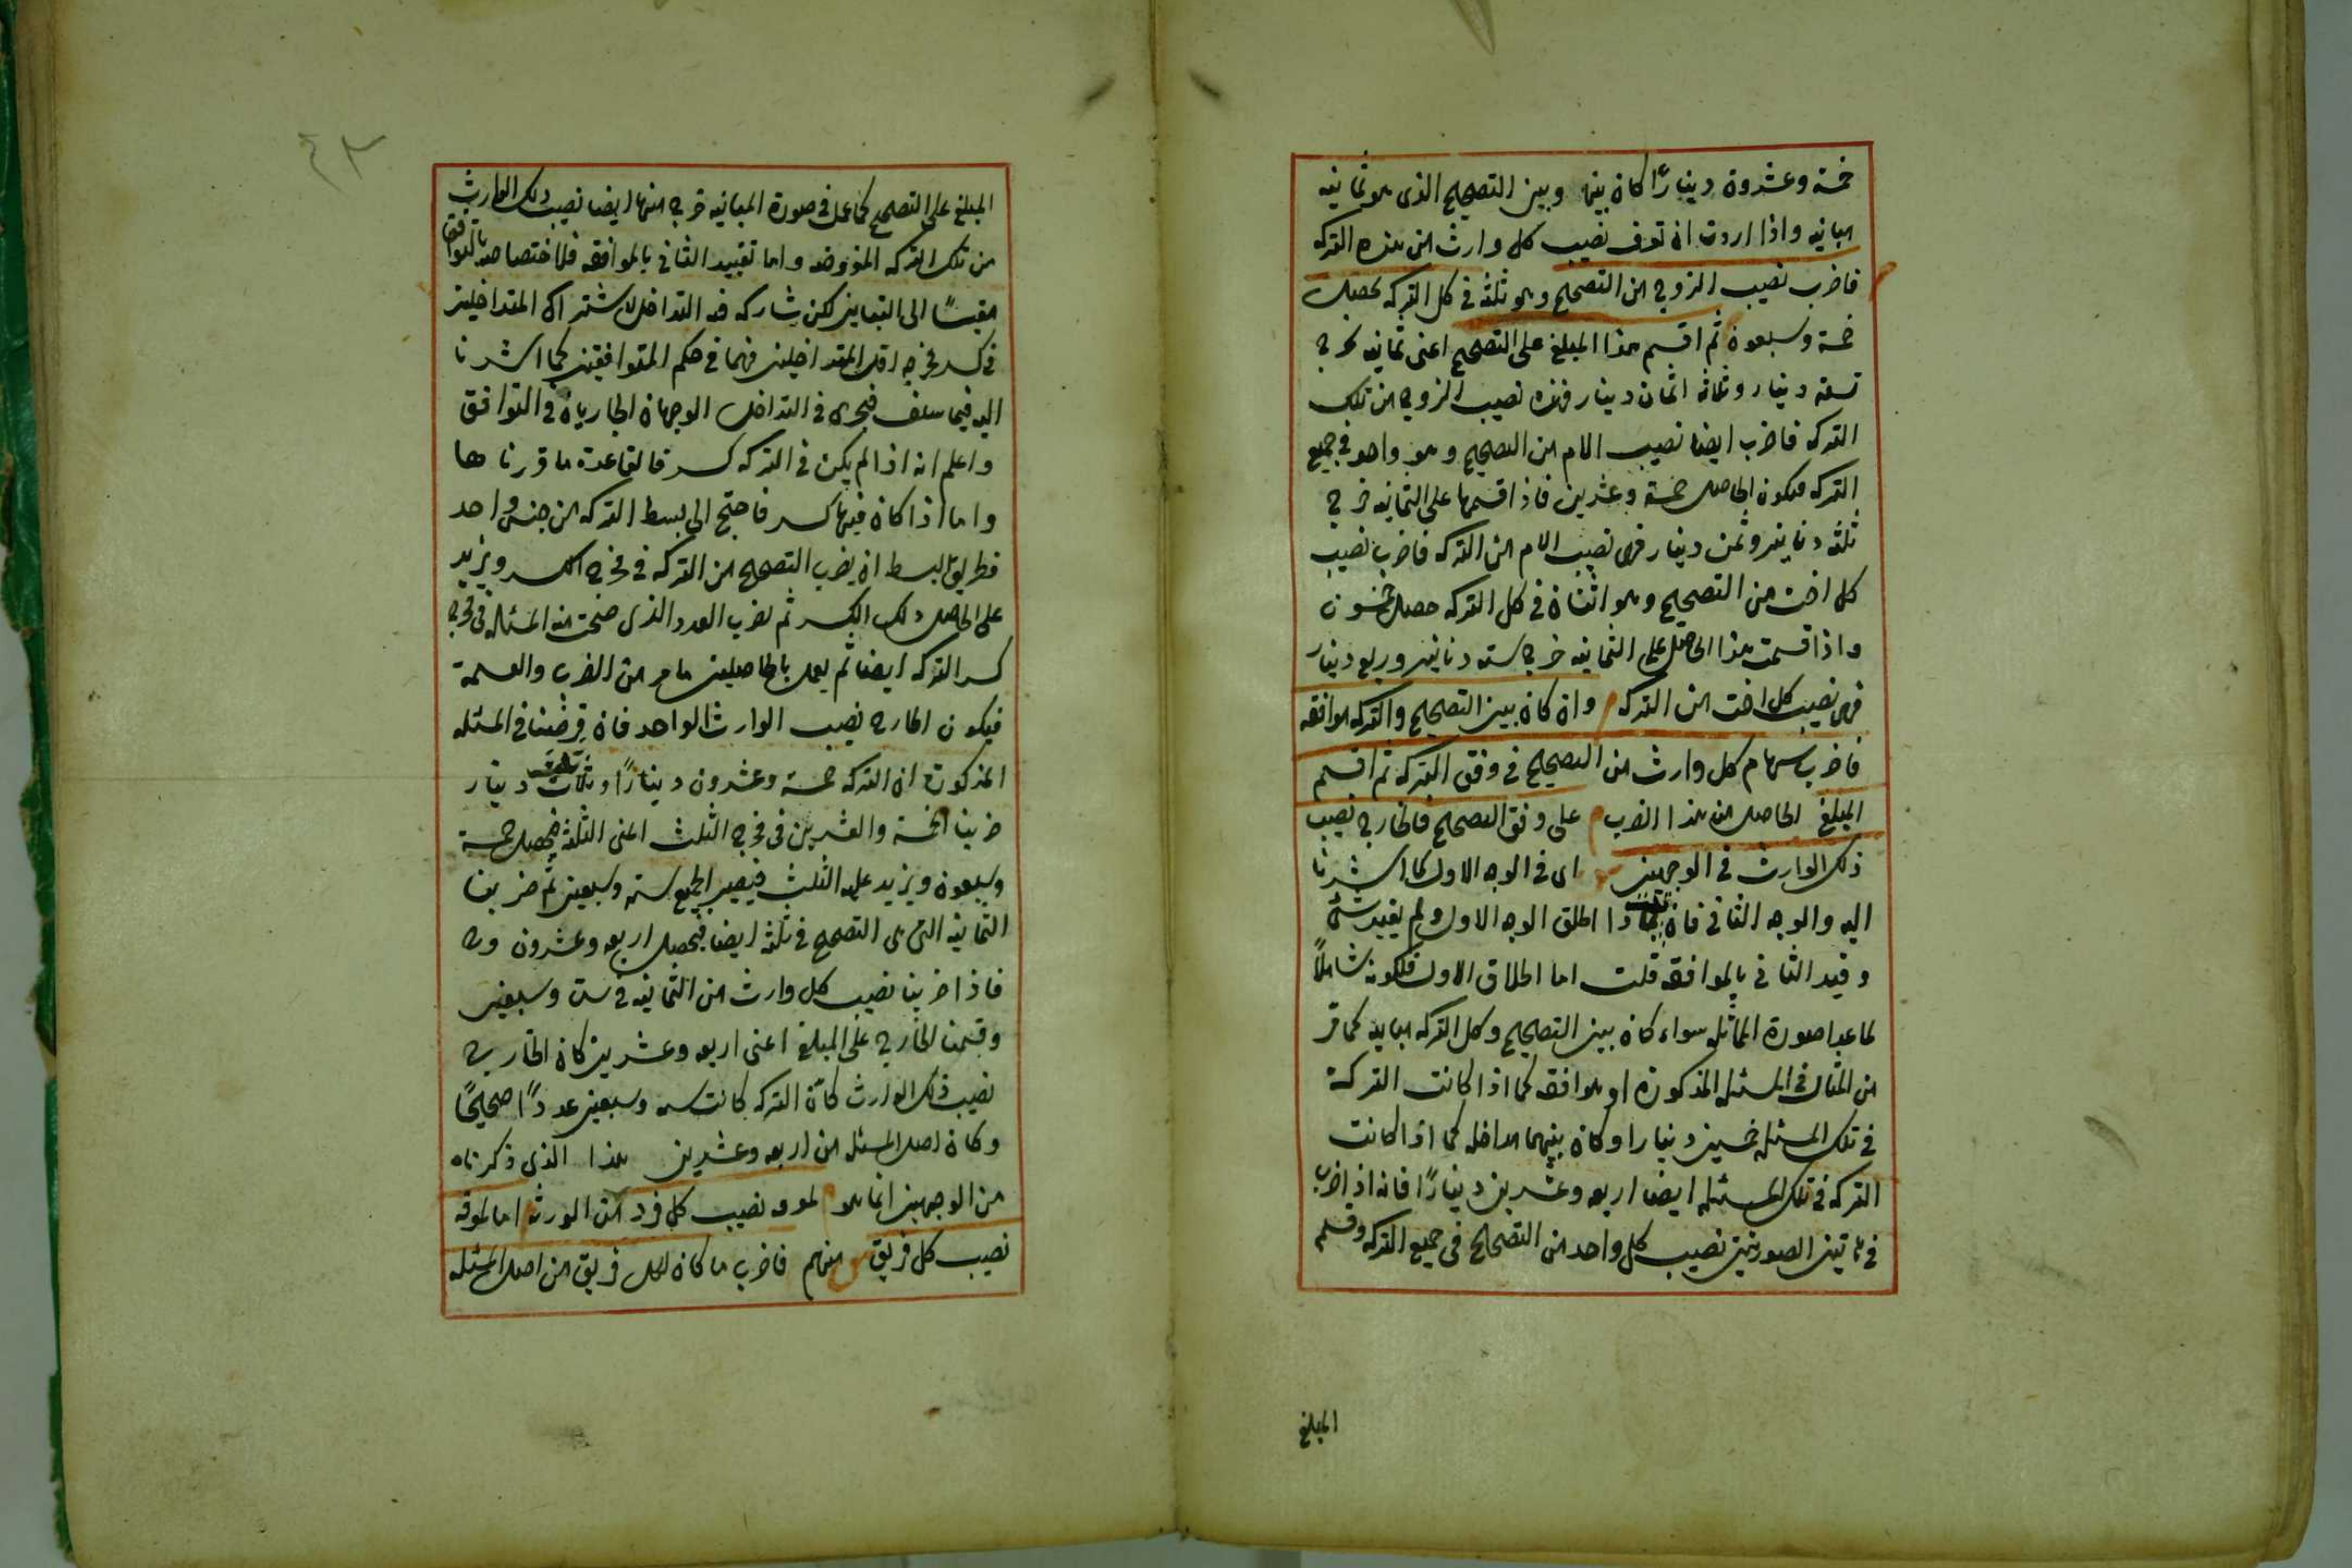 خمسة وعشرون دينارًا كان بينها وبين التصحيح الذى هو ثمانيه
مباينه واذا اردت ان تعرف نصيب كل وارث من هذه التركه
فاضرب نصيب الزوج من التصحيح وهو ثلثه فى كل التركه يحصل
خمسة وسبعون ثم اقسم هذا المبلغ على التصحيح اعنى ثمانيه يخرج
تسعه دينار وثلثه اثمان دينار فهذه نصيب الزوج من تلك
التركه فاضرب ايضا نصيب الام من التصحيح وهو واحد فى جميع
التركه فيكون الحاصل خمسة وعشرين فاذا قسمها على الثمانيه خرج
ثلثه دنانير وثمن دينار فهى نصيب الام من التركه فاضرب نصيب
كل اخت من التصحيح وهو اثنان فى كل التركه حصل خمسون
واذا قسمت هذا الحاصل على الثمانيه خرج سته دنانير وربع دينار
فهى نصيب كل اخت من التركه وان كان بين التصحيح والتركه موافقه
فاضرب سهام كل وارث من التصحيح فى وفق التركه ثم اقسم
المبلغ الحاصل من هذا الضرب على وفق التصحيح فالخارج نصيب
ذلك الوارث فى الوجهين اى فى الوجه الاول كما اشرنا
اليه والوجه الثانى فان قلت لماذا اطلق الوجه الاول ولم يقيد بشئ
وقيد الثانى بالموافقه قلت اما اطلاق الاول فلكونه شاملًا
لما عدا صورة المماثله سواء كان بين التصحيح وكل التركه مباينه كما مر
من المثال فى المسئله المذكورة او موافقه كما اذا كانت التركة
فى تلك المسئله خمسين دينارا وكان بينهما مداخله كما اذا كانت
التركه فى تلك المسئله ايضا اربعه وعشرين دينارًا فانه اذا ضرب
فى هاتين الصورتين نصيب كل واحد من التصحيح فى جميع التركه وقسم
المبلغ
٤٣
المبلغ على التصحيح كما عمل فى صورة المباينه خرج منها ايضا نصيب ذلك الوارث
من تلك التركه المفروضه واما تقييد الثانى بالموافقه فلاختصاصه بالتوافق
مقيسًا الى التباين لكن يشاركه فيه التداخل لاشتراك المتداخلين
فى كسر مخرجه اقل المتداخلين فهما فى حكم المتوافقين كما اشرنا
اليه فيما سلف فيجرى فى التداخل الوجهان الجاريان فى التوافق
واعلم انه اذا لم يكن فى التركه كسر فالقاعدة ما قررناها
واما اذا كان فيها كسر فاحتج الى بسط التركه من جنس واحد
فطريق البسط ان يضرب التصحيح من التركه فى مخرج الكسر ويزيد
على الحاصل ذلك الكسر ثم يضرب العدد الذى صحت منه المسئله فى مخرج
كسر التركه ايضا ثم يعمل بالحاصلين ما مر من الضرب والقسمة
فيكون الخارج نصيب الوارث الواحد فان فرضنا فى المسئله
المذكورة ان التركه خمسة وعشرون دينارًا وثلث دينار
ضربنا الخمسة والعشرين فى مخرج الثلث اعنى الثلثه فيحصل خمسة
وسبعون ويزيد عليه الثلث فيصير الجميع سته وسبعين ثم ضربنا
الثمانيه التى هى التصحيح فى ثلثه ايضا فيحصل اربعه وعشرون
فاذا ضربنا نصيب كل وارث من الثمانيه فى ست وسبعين
وقسمنا الخارج على المبلغ اعنى اربعه وعشرين كان الخارج
نصيب ذلك الوارث كأن التركه كانت سته وسبعين عددًا صحيحًا
وكان اصل المسئله من اربعه وعشرين هذا الذى ذكرناه
من الوجهين انما هو لمعرفه نصيب كل فرد من الورثه اما لمعرفه
نصيب كل فريق منهم فاضرب ما كان لكل فريق من اصل المسئله